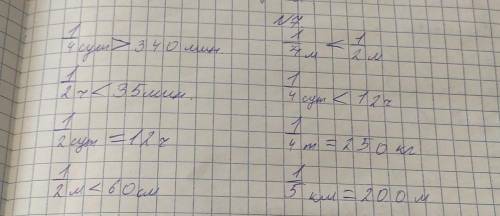 №7
1/4 сут > 340 мин.
1/2 ч < 35 мин.
1/2 сут = 12 ч
1/2 м < 60 см
1/4 м < 1/2 м
1/4 сут < 12 ч
1/4 т = 250 кг
1/5 км = 200 м